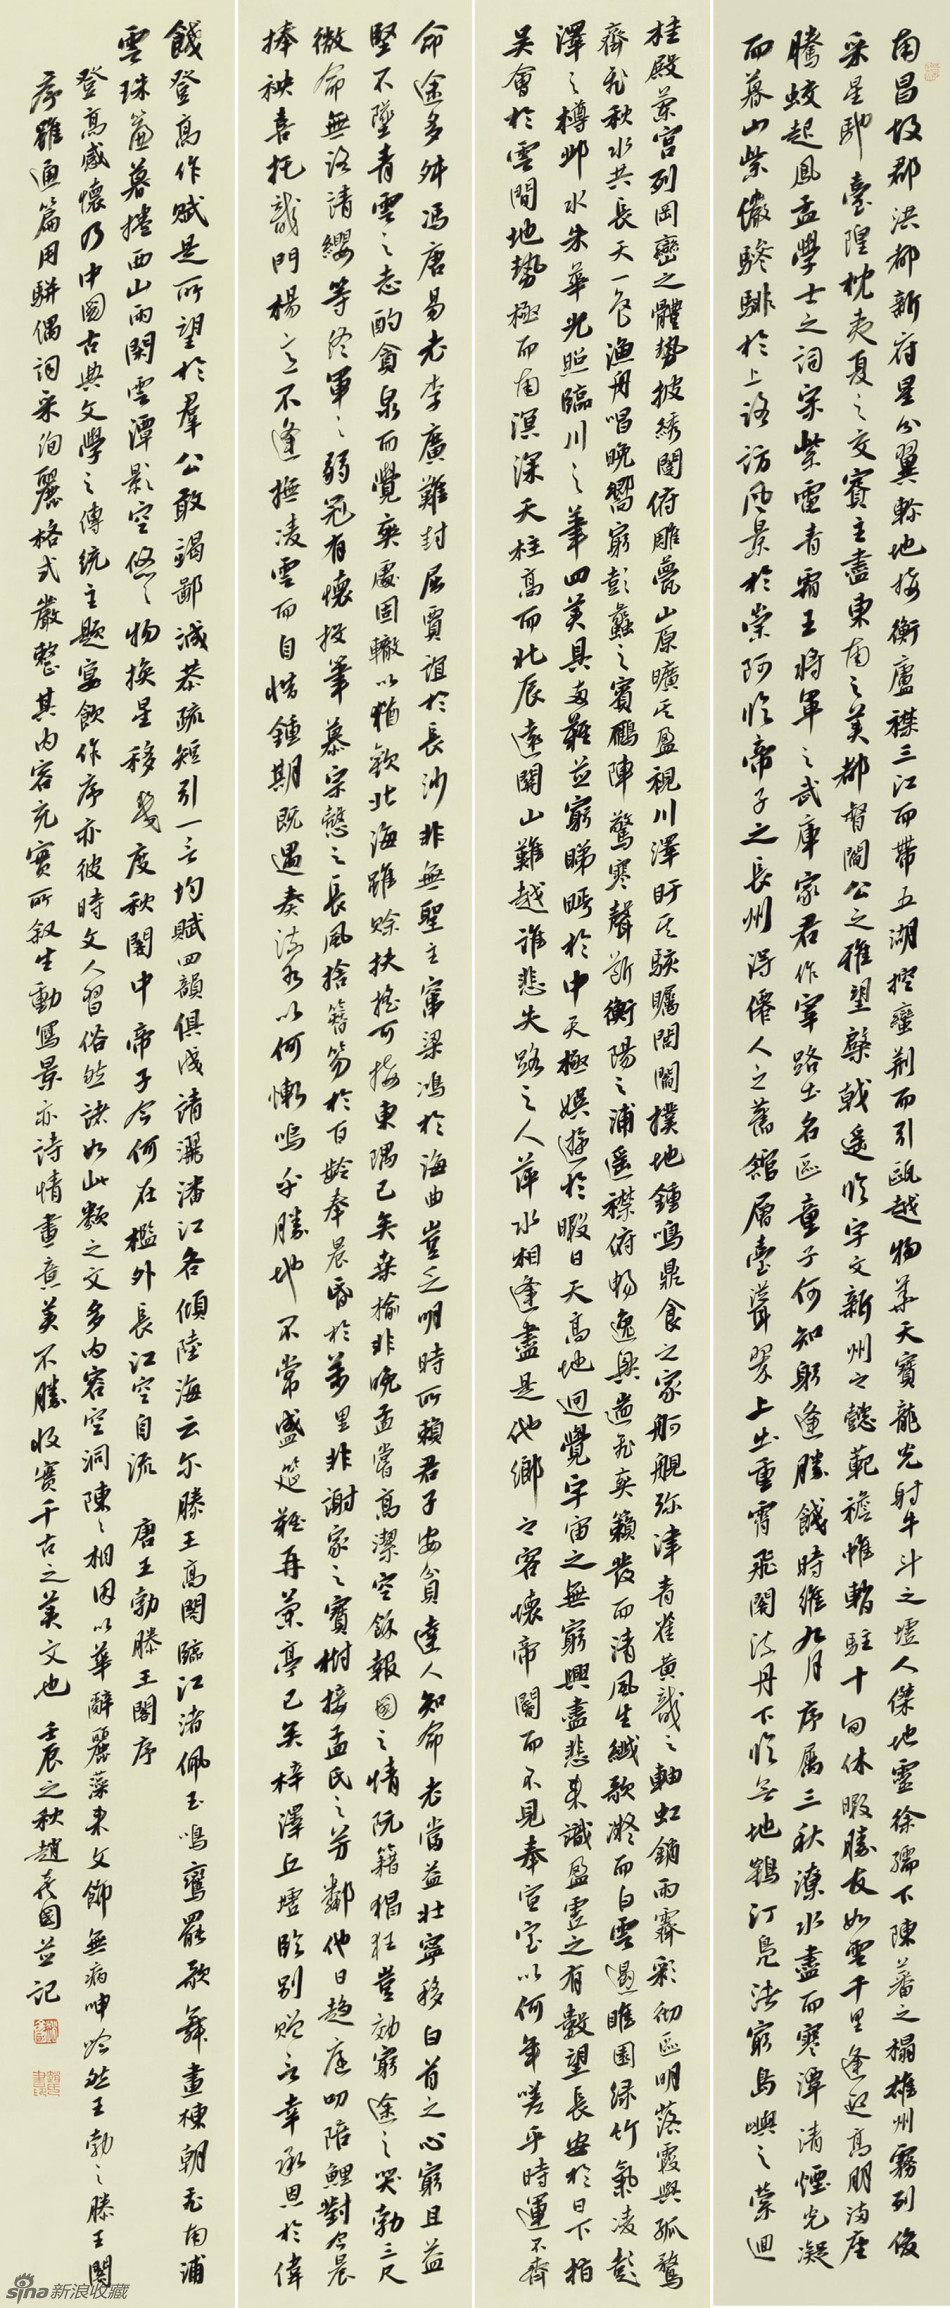 南昌故郡洪都新府星分翼軫地接衡廬襟三江而帶五湖控蠻荊而引甌越物華天寶龍光射牛斗之墟人傑地靈徐孺下陳蕃之榻雄州霧列俊
采星馳臺隍枕夷夏之交賓主盡東南之美都督閻公之雅望棨戟遙臨宇文新州之懿範襜帷暫駐十旬休暇勝友如雲千里逢迎高朋滿座
騰蛟起鳳孟學士之詞宗紫電青霜王將軍之武庫家君作宰路出名區童子何知躬逢勝餞時維九月序屬三秋潦水盡而寒潭清煙光凝
而暮山紫儼驂騑於上路訪風景於崇阿臨帝子之長州得僊人之舊館層臺聳翠上出重霄飛閣流丹下臨無地鶴汀鳧渚窮島嶼之縈迴
桂殿蘭宮列岡巒之體勢披綉闥俯雕甍山原曠其盈視川澤盱其駭矚閭閻撲地鍾鳴鼎食之家舸艦彌津青雀黃龍之軸虹銷雨霽彩徹區明落霞與孤鶩
齊飛秋水共長天一色漁舟唱晚響窮彭蠡之賓雁陣驚寒聲斷衡陽之浦遙襟俯暢逸興遄飛爽籟發而清風生纖歌凝而白雲遏睢園綠竹氣凌彭
澤之樽鄴水朱華光照臨川之筆四美具二難並窮睇眄於中天極娛遊於暇日天高地迥覺宇宙之無窮興盡悲來識盈虛之有數望長安於日下指
吳會於雲間地勢極而南溟深天柱高而北辰遠關山難越誰悲失路之人萍水相逢盡是他鄉之客懷帝閽而不見奉宣室以何年嗟乎時運不齊
命途多舛馮唐易老李廣難封屈賈誼於長沙非無聖主竄梁鴻於海曲豈乏明時所賴君子安貧達人知命老當益壯寧移白首之心窮且益
堅不墜青雲之志酌貪泉而覺爽處涸轍以猶歡北海雖賒扶搖可接東隅已矣桑榆非晚孟嘗高潔空餘報國之情阮籍猖狂豈效窮途之哭勃三尺
微命無路請纓等終軍之弱冠有懷投筆慕宗愨之長風捨簪笏於百齡奉晨昏於萬里非謝家之寶樹接孟氏之芳鄰他日趨庭叨陪鯉對今晨
捧袂喜托龍門楊意不逢撫凌雲而自惜鍾期既遇奏流水以何慚嗚乎勝地不常盛筵難再蘭亭已矣梓澤丘墟臨別贈言幸承恩於偉
餞登高作賦是所望於羣公敢竭鄙誠恭疏短引一言均賦四韻俱成請灑潘江各傾陸海云尔滕王高閣臨江渚佩玉鳴鸞罷歌舞畫棟朝飛南浦
雲珠簾暮捲西山雨閑雲潭影空悠悠物換星移幾度秋閣中帝子今何在檻外長江空自流 唐王勃滕王閣序
登高感懷乃中國古典文學之傳統主題宴飲作序亦彼時文人習俗然諸如此類之文多內容空洞陳陳相因以華辭麗藻來文飾無病呻吟然王勃之滕王閣
序雖通篇用駢偶詞采絢麗格式嚴整其內容充實所叙生動寫景亦詩情畫意美不勝收實千古之美文也 壬辰之秋趙國並記
sina新浪收藏